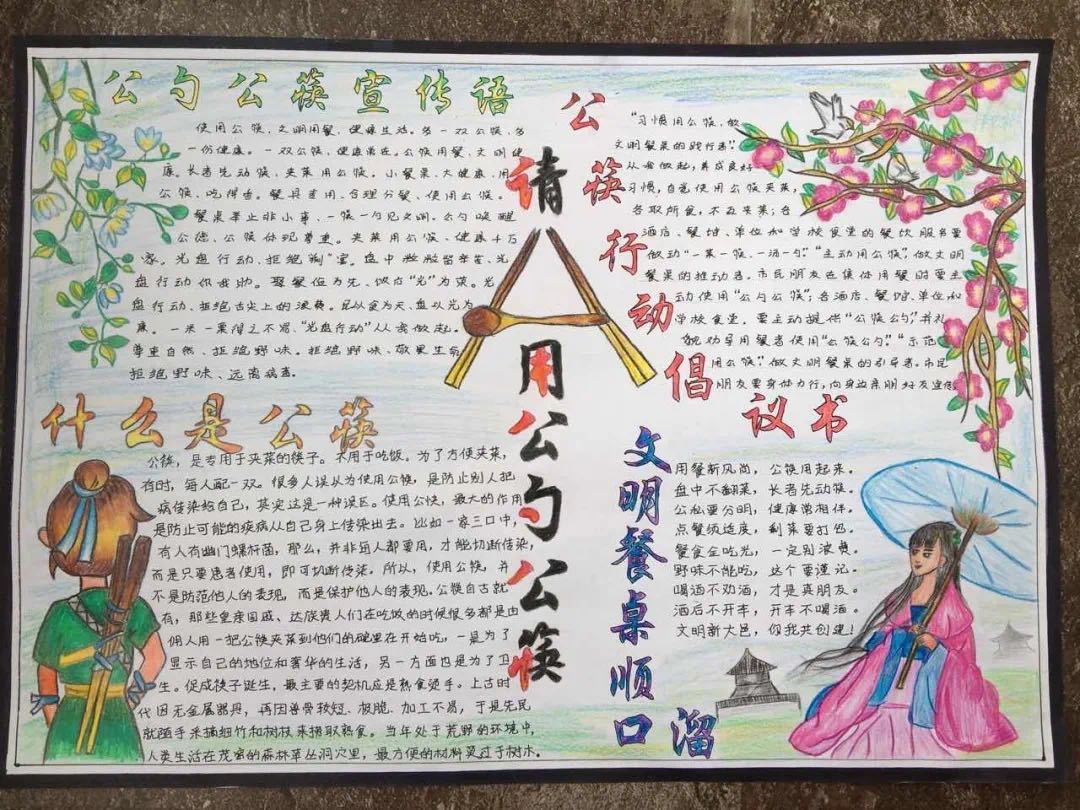 公勺公筷宣传语
使用公筷、文明用餐、健康生活。多一双公筷、多
一份健康。一双公筷、健康常在。公筷用餐、文明健
康。长者先动筷、夹菜用公筷。小餐桌、大健康、用
公筷、吃得香。餐具专用、合理分餐、使用公筷。
餐桌举止非小事、一筷一勺见文明。公勺唤醒
公德、公筷体现尊重。夹菜用公筷、健康十万
家。光盘行动、拒绝剩宴。盘中粒粒留辛苦、光
盘行动你我助。聚餐俭为先、饭店"光"为荣。光
盘行动、拒绝舌尖上的浪费。民以食为天、盘以光为
康。一米一粟得之不易、"光盘行动"从我做起。
尊重自然、拒绝野味。拒绝野味、敬畏生命
拒绝野味、远离病毒。
什么是公筷
公筷，是专用于夹菜的筷子。不用于吃饭。为了方便夹菜，
有时，每人配一双。很多人误认为使用公筷，是防止别人把
病传染给自己，其实这是一种误区。使用公筷，最大的作用
是防止可能的疾病从自己身上传染出去。比如一家三口中，
有人有幽门螺杆菌，那么，并非每人都要用，才能切断传染，
而是只要患者使用，即可切断传染。所以，使用公筷，并
不是防范他人的表现，而是保护他人的表现。公筷自古就
有，那些皇亲国戚、达族贵人们在吃饭的时候很多都是由
佣人用一把公筷夹菜到他们的碗里在开始吃，一是为了
显示自己的地位和奢华的生活，另一方面也是为了卫
生。促成筷子诞生，最主要的契机应是熟食烫手。上古时
代因无金属器具，再因兽骨较短、极脆、加工不易，于是先民
就随手采摘细竹和树枝来捞取熟食。当年处于荒野的环境中，
人类生活在茂密的森林草丛洞穴里，最方便的材料莫过于树木。
请用公勺公筷
公筷行动倡议书
"习惯用公筷、做
文明餐桌的践行者"
从我做起，养成良好
习惯，自觉使用公筷夹菜，
各取所食，不乱夹菜；各
酒店、餐馆、单位和学校食堂的餐饮服务要
做动"一菜一筷、一汤一勺"。"主动用公筷"、做文明
餐桌的推动者。市民朋友在集体用餐时要主
动使用"公勺公筷"；各酒店、餐馆、单位和
学校食堂。要主动提供"公筷公勺"，并礼
貌劝导用餐者使用"公筷公勺"。"示范
用公筷"。做文明餐桌的引导者。市民
朋友要身体力行，向身边亲朋好友宣传
文明餐桌顺口溜
用餐新风尚，公筷用起来。
盘中不翻菜，长者先动筷。
公私要分明，健康常相伴。
点餐须适度，剩菜要打包。
餐食全吃光，一定别浪费。
野味不能吃，这个要谨记。
喝酒不劝酒，才是真朋友。
酒后不开车，开车不喝酒。
文明新大邑，你我共创建！